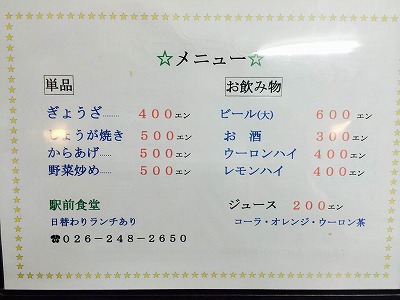 ☆メニュー☆
単品
ぎょうざ……… 400エン
しょうが焼き 500エン
からあげ…… 500エン
野菜炒め…… 500エン
お飲み物
ビール(大) 600エン
お酒 300エン
ウーロンハイ 400エン
レモンハイ 400エン
駅前食堂
日替わりランチあり
☎026-248-2650
ジュース 200エン
コーラ・オレンジ・ウーロン茶